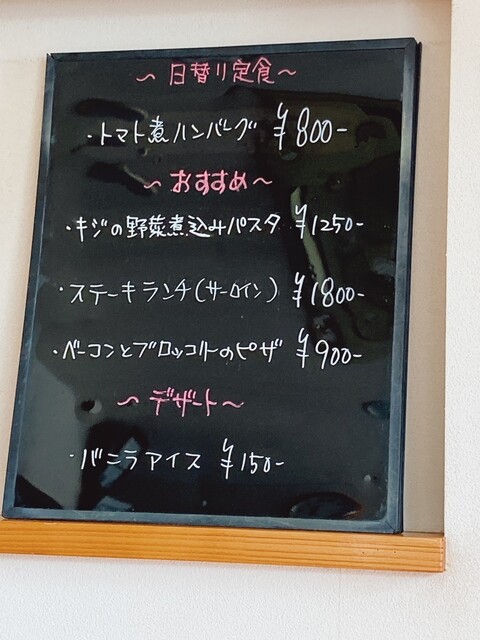 ～日替り定食～
・トマト煮ハンバーグ ¥800-
～おすすめ～
・キジの野菜煮込みパスタ ¥1250-
・ステーキランチ(サーロイン) ¥1800-
・ベーコンとブロッコリーのピザ ¥900-
～デザート～
・バニラアイス ¥150-